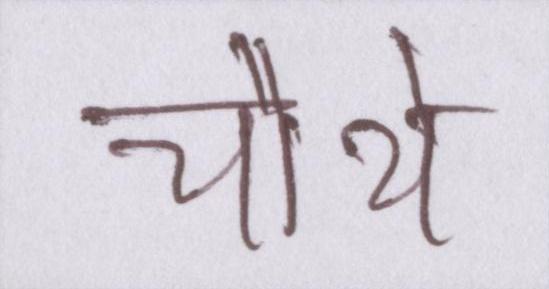 चौथे